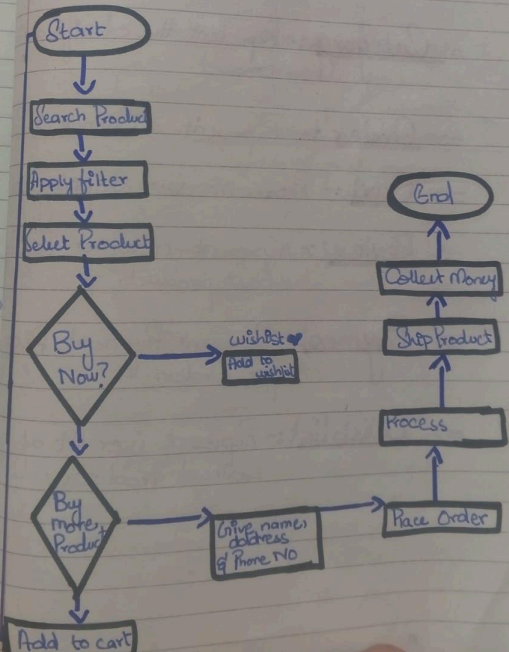 Start
Search Product
Apply filter
Select Product
Buy
Now?
wishlist
Add to
wishlist
Buy
more
Product
Give name,
address
& Phone NO
Add to cart
Place Order
Process
Ship Product
Collect Money
End